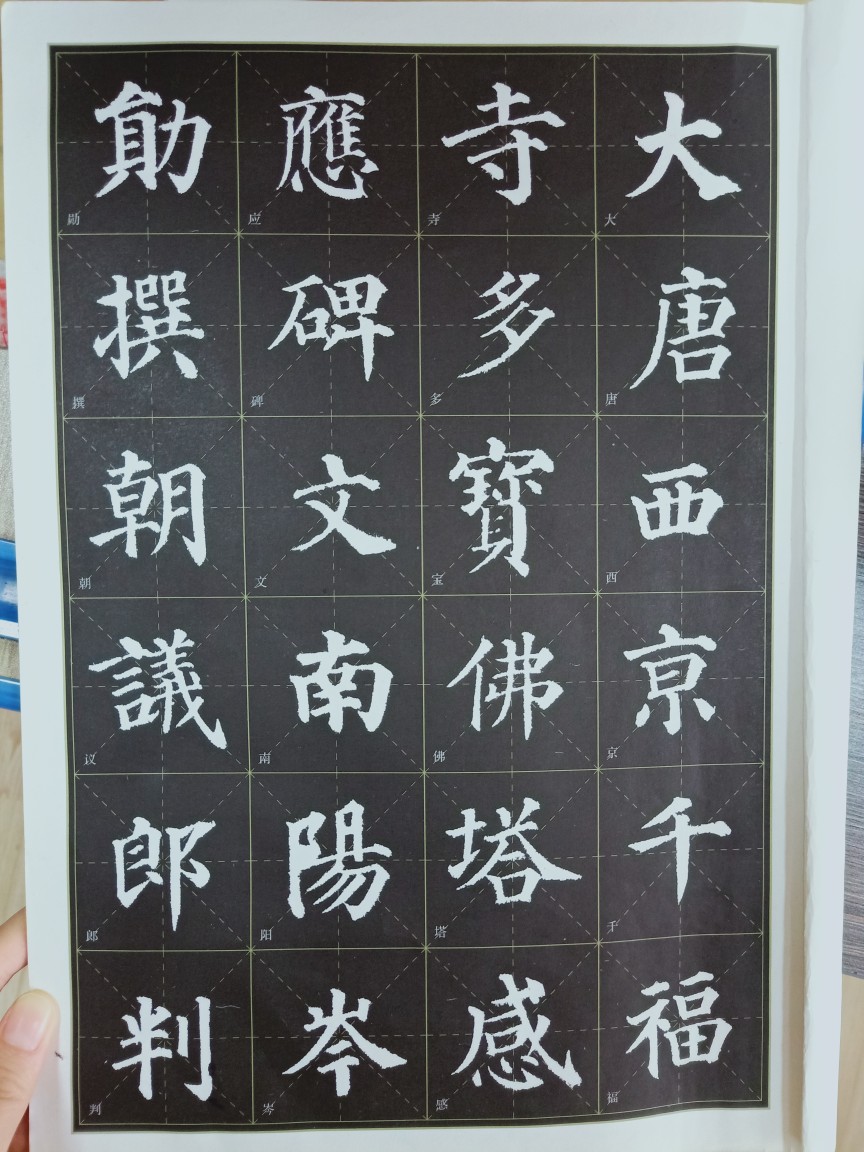 大唐西京千福
大唐西京千福
寺多寶佛塔感
寺多宝佛塔感
應碑文南陽岑
应碑文南阳岑
勛撰朝議郎判
勋撰朝议郎判